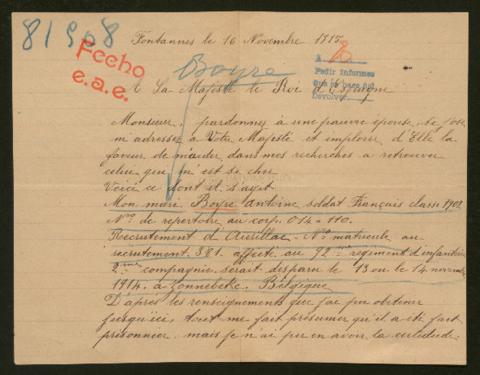 81908
Fecho
e.a.e.
Fontannes le 16 Novembre 1915.
Boyre
A
Pedir informes
Devolver
A La Majesté le Roi d'Espagne
Monsieur, pardonnez à une pauvre épouse, si j'ose
m'adresser à Votre Majesté et implorer d'Elle la
faveur de m'aider dans mes recherches à retrouver
celui qui m'est si cher.
Voici ce dont il s'agit
Mon mari Boyre Antoine, soldat Français classe 1902
Nos de repertoire au corp. 014 = 110.
Recrutement d'Aurillac - No matricule au
recrutement 381. affecté au 92me regiment d'infanterie
2me compagnie serait disparu le 13 ou le 14 novembre
1914. à Zonnebeke. Belgique
D'après les renseignements que j'ai pu obtenir
jusqu'ici, tout me fait présumer qu'il a été fait
prisonnier. mais je n'ai pu en avoir la certitude.